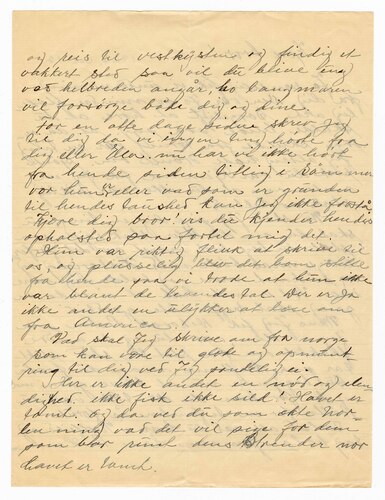 og reis til vestkysten og findig et
vakkert sted saa vil du blive ung
vad helbreden angår,
vil forsørge både dig og dine.
For en otte dage siden skrev jeg
til dig da vi ingen ting hørte fra
dig eller Olea. nu har vi ikke hørt
fra hende siden tidlig i sommer
vor hun er eller vad som er grunden
til hendes taushed kan jeg ikke forstå
Kjære dig bror! vis du kjender hendes
opholsted saa fortel mig det.
Hun var riktig flink at skrive til
os, og plutselig blev det stille
fra hende saa vi trode at hun ikke
var blant de levendes tal. Der er jo
ikke andet en ulykker at læse om
fra Amerika.
Vad skal jeg skrive om fra norge
som kan være til glæde og opmunt-
ring til dig ved jeg sandelig ei.
Her er ikke andet en nød og elen-
dighed, ikke fisk ikke sild! Havet er
tomt. og da ved du som ekte nor-
vad det vil sige for dem
som bor runt dens strender nor
havet er tomt.